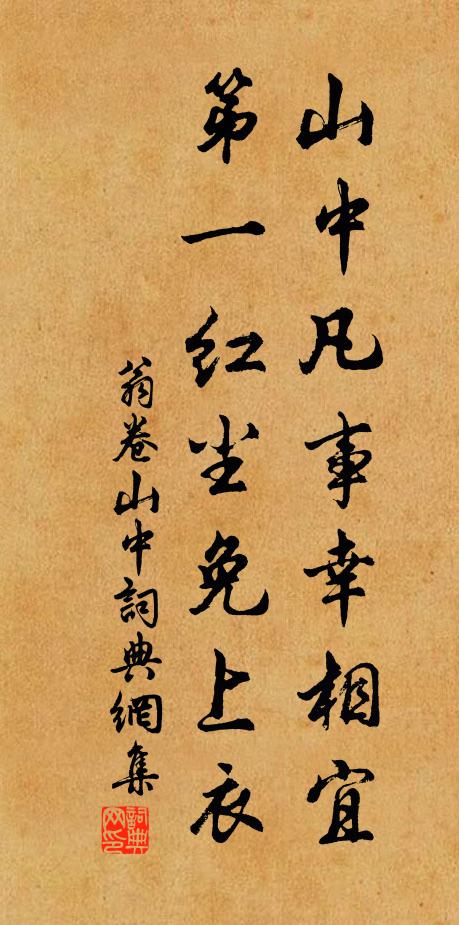 山中凡事幸相宜
第一红尘免上衣
翁卷山中詞典網集
詞典网印